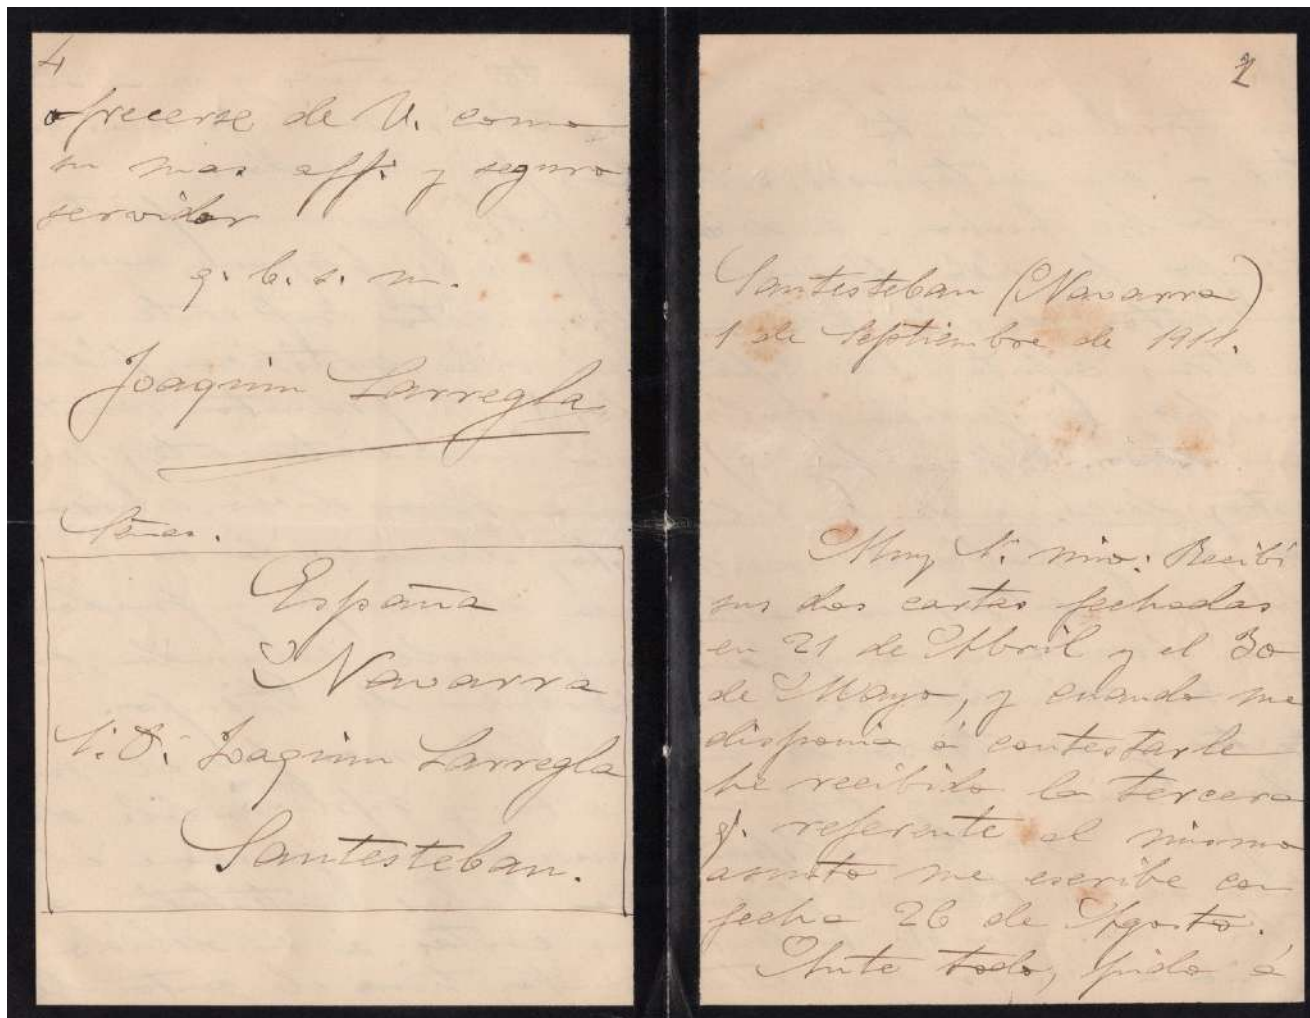 4
ofrecerse de V. como
su mas aff. y seguro
servidor
q. b. s. m.
Joaquin Larregla
Señas.
España
Navarra
S. D. Joaquin Larregla
Santesteban.
1
Santesteban (Navarra)
1 de Septiembre de 1911.
Muy S. mio: Recibi
sus dos cartas fechadas
en 21 de Abril y el 30
de Mayo, y cuando me
disponia á contestarle
he recibido la tercera
q. referente al mismo
asunto me escribe con
fecha 26 de Agosto.
Ante todo, pido á